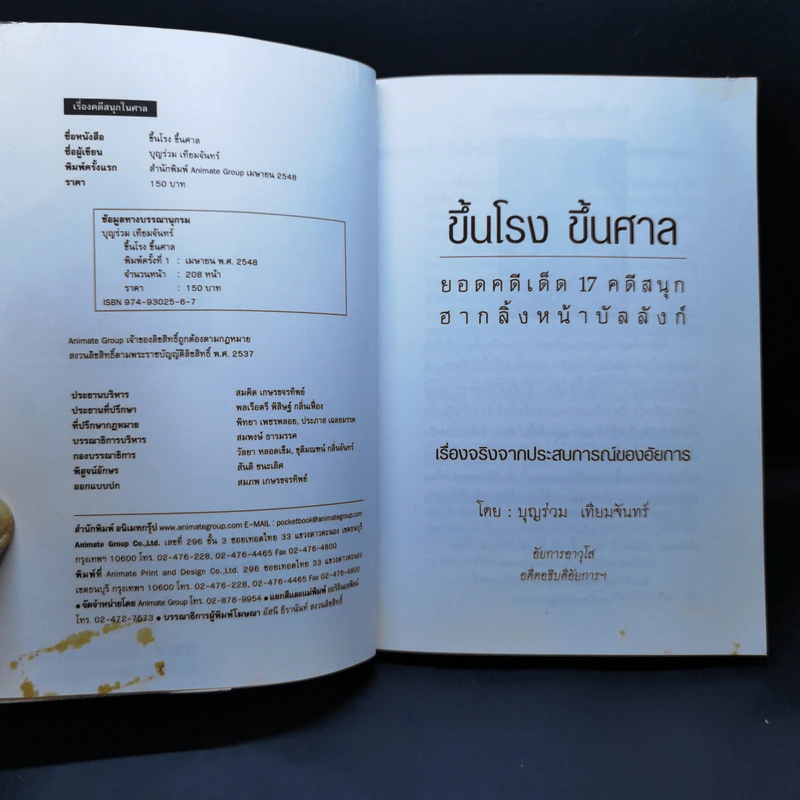 เรื่องคดีสนุกในศาล
ชื่อหนังสือ ขึ้นโรง ขึ้นศาล
ชื่อผู้เขียน บุญร่วม เทียมจันทร์
พิมพ์ครั้งแรก สำนักพิมพ์ Animate Group เมษายน 2548
ราคา 150 บาท
ข้อมูลทางบรรณานุกรม
บุญร่วม เทียมจันทร์
ขึ้นโรง ขึ้นศาล
พิมพ์ครั้งที่ 1 : เมษายน พ.ศ. 2548
จำนวนหน้า : 208 หน้า
ราคา : 150 บาท
ISBN 974-93025-6-7
Animate Group เจ้าของลิขสิทธิ์ถูกต้องตามกฎหมาย
สงวนลิขสิทธิ์ตามพระราชบัญญัติลิขสิทธิ์ พ.ศ. 2537
ประธานบริหาร สมคิด เกษรขจรทิพย์
ประธานที่ปรึกษา พลเรือตรี พิสิษฐ์ กลิ่นเฟื่อง
ที่ปรึกษากฎหมาย พิทยา เพชรพลอย, ประภาส เฉลยมรรค
บรรณาธิการบริหาร สมพงษ์ ธารมรรค
กองบรรณาธิการ วัลยา หลอดเข็ม, ชุติมณฑน์ กลิ่นจันทร์
พิสูจน์อักษร สันติ ชนะเลิศ
ออกแบบปก สมภพ เกษรขจรทิพย์
สำนักพิมพ์ อนิเมทกรุ๊ป www.animategroup.com E-MAIL : pocketbook@animategroup.com
Animate Group Co.,Ltd. เลขที่ 296 ชั้น 3 ซอยเทอดไทย 33 แขวงดาวคะนอง เขตธนบุรี
กรุงเทพฯ 10600 โทร. 02-476-228, 02-476-4465 Fax 02-476-4800
พิมพ์ที่ Animate Print and Design Co.,Ltd. 296 ซอยเทอดไทย 33 แขวงดาวคะนอง
เขตธนบุรี กรุงเทพฯ 10600 โทร. 02-476-228, 02-476-4465 Fax 02-476-4800
• จัดจำหน่ายโดย Animate Group โทร. 02-878-9954 • แยกสีและแม่พิมพ์
โทร. 02-472-7573 • บรรณาธิการผู้พิมพ์โฆษณา อัสนี ธีรานันท์ สงวนลิขสิทธิ์
ขึ้นโรง ขึ้นศาล
ยอดคดีเด็ด 17 คดีสนุก
ฮากลิ้งหน้าบัลลังก์
เรื่องจริงจากประสบการณ์ของอัยการ
โดย : บุญร่วม เทียมจันทร์
อัยการอาวุโส
อดีตอธิบดีอัยการฯ